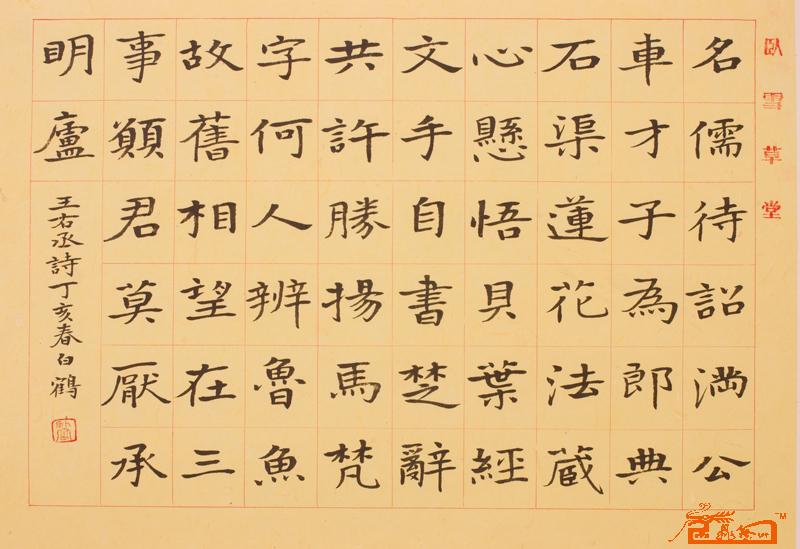 卧雪草堂
名儒待詔満公
車才子為郎典
石渠蓮花法蔵
心懸悟貝葉經
文手自書楚辭
共許勝揚馬梵
字何人辨魯魚
故舊相望在三
事願君莫厭承
眀廬
王右丞詩丁亥春白鶴
TM